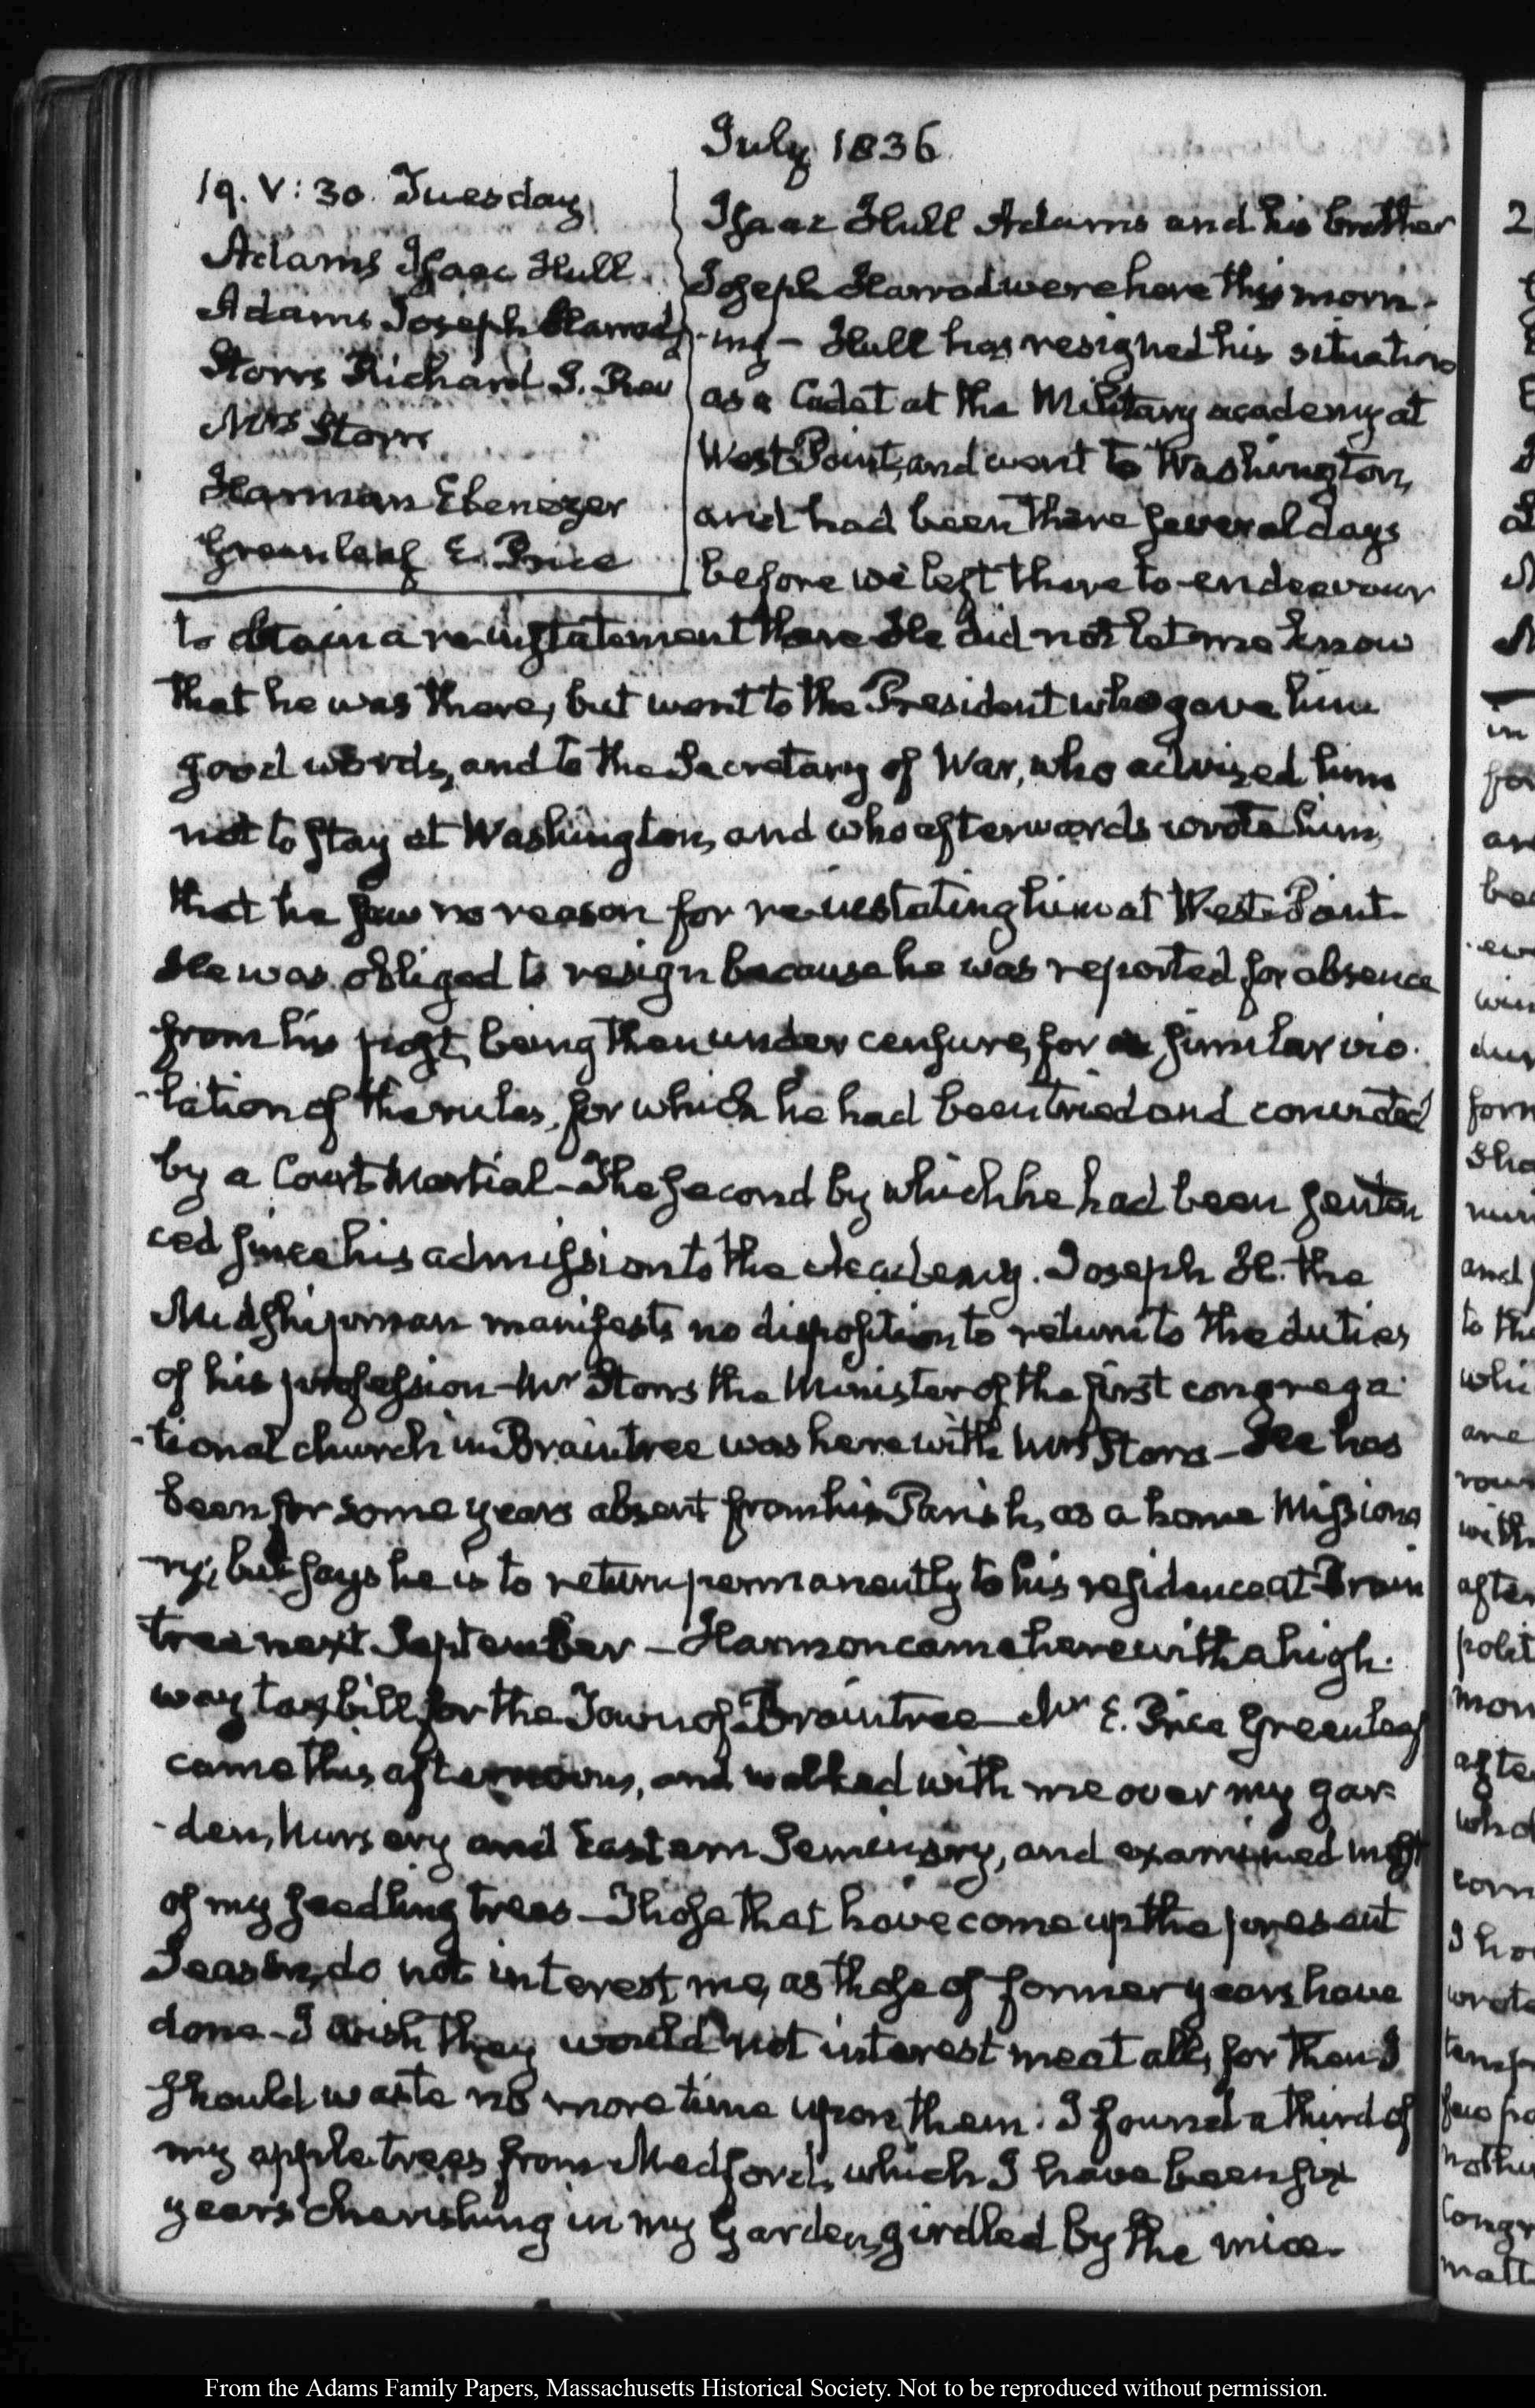 July 1836.
19. V: 30. Tuesday
Adams Isaac Hull.
Adams Joseph Harrod
Storrs Richard S. Rev
Mrs Storrs
Harman Ebenezer
Greenleaf E. Price
Isaac Hull Adams and his brother
Joseph Harrod were here this morn-
-ing – Hull has resigned his situation
as a Cadet at the Military academy at
West-Point, and went to Washington,
and had been there several days
before we left there to endeavour
to obtain a re-instatement there He did not let me know
that he was there, but went to the President who gave him
good words, and to the Secretary of War, who advised him
not to stay at Washington, and who afterwards wrote him,
that he saw no reason for re-instating him at West-Point.
He was obliged to resign because he was reported for absence
from his post, being then under censure, for a similar vio-
-lation of the rules, for which he had been tried and convicted
by a Court-Martial – The second by which he had been senten
ced since his admission to the Academy. Joseph H. the
Midshipman manifests no disposition to return to the duties
of his profession – Mr Storrs the Minister of the first congrega-
-tional church in Braintree was here with Mrs Storrs – He has
been for some years absent from his Parish, as a home Missiona
-ry, but says he is to return permanently to his residence at Brain
tree next September – Harmon came here with a high-
way tax bill for the Town of Braintree – Mr E. Price Greenleaf
came this afternoon, and walked with me over my gar-
-den, Nursery and Eastern Seminary, and examined most
of my seedling trees – Those that have come up the present
Season, do not interest me, as those of former years have
done – I wish they would not interest me at all, for then I
should waste no more time upon them. I found a third of
my apple trees from Medford, which I have been six
years cherishing in my Garden, girdled by the mice.
From the Adams Family Papers, Massachusetts Historical Society. Not to be reproduced without permission.